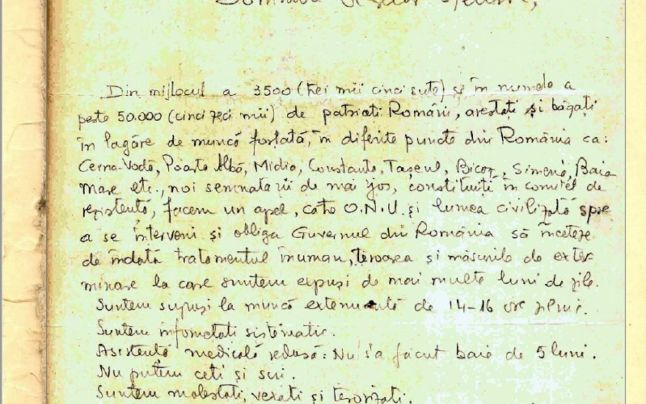 Din mijlocul a 3500 (trei mii cinci sute) și în numele a
peste 50.000 (cinci zeci mii) de patrioți Români, arestați și băgați
în lagăre de muncă forțată, în diferite puncte din România ca:
Cerna-Vodă, Poarta Albă, Midia, Constanța, Tașeul, Bicaz, Simeria, Baia
Mare etc., noi semnatarii de mai jos, constituiți în comitet de
rezistență, facem un apel, către O.N.U. și lumea civilizată spre
a se interveni și obliga Guvernul din România să înceteze
de îndată tratamentul inuman, teroarea și măsurile de exter
minare la care suntem expuși de mai multe luni de zile.
Suntem supuși la muncă extenuantă de 14-16 ore zilnic.
Suntem infometati sistematic.
Asistență medicală redusă. Nu s'a făcut baie de 5 luni.
Nu putem ceti și scri.
Suntem molestați, vexați și terorizați.